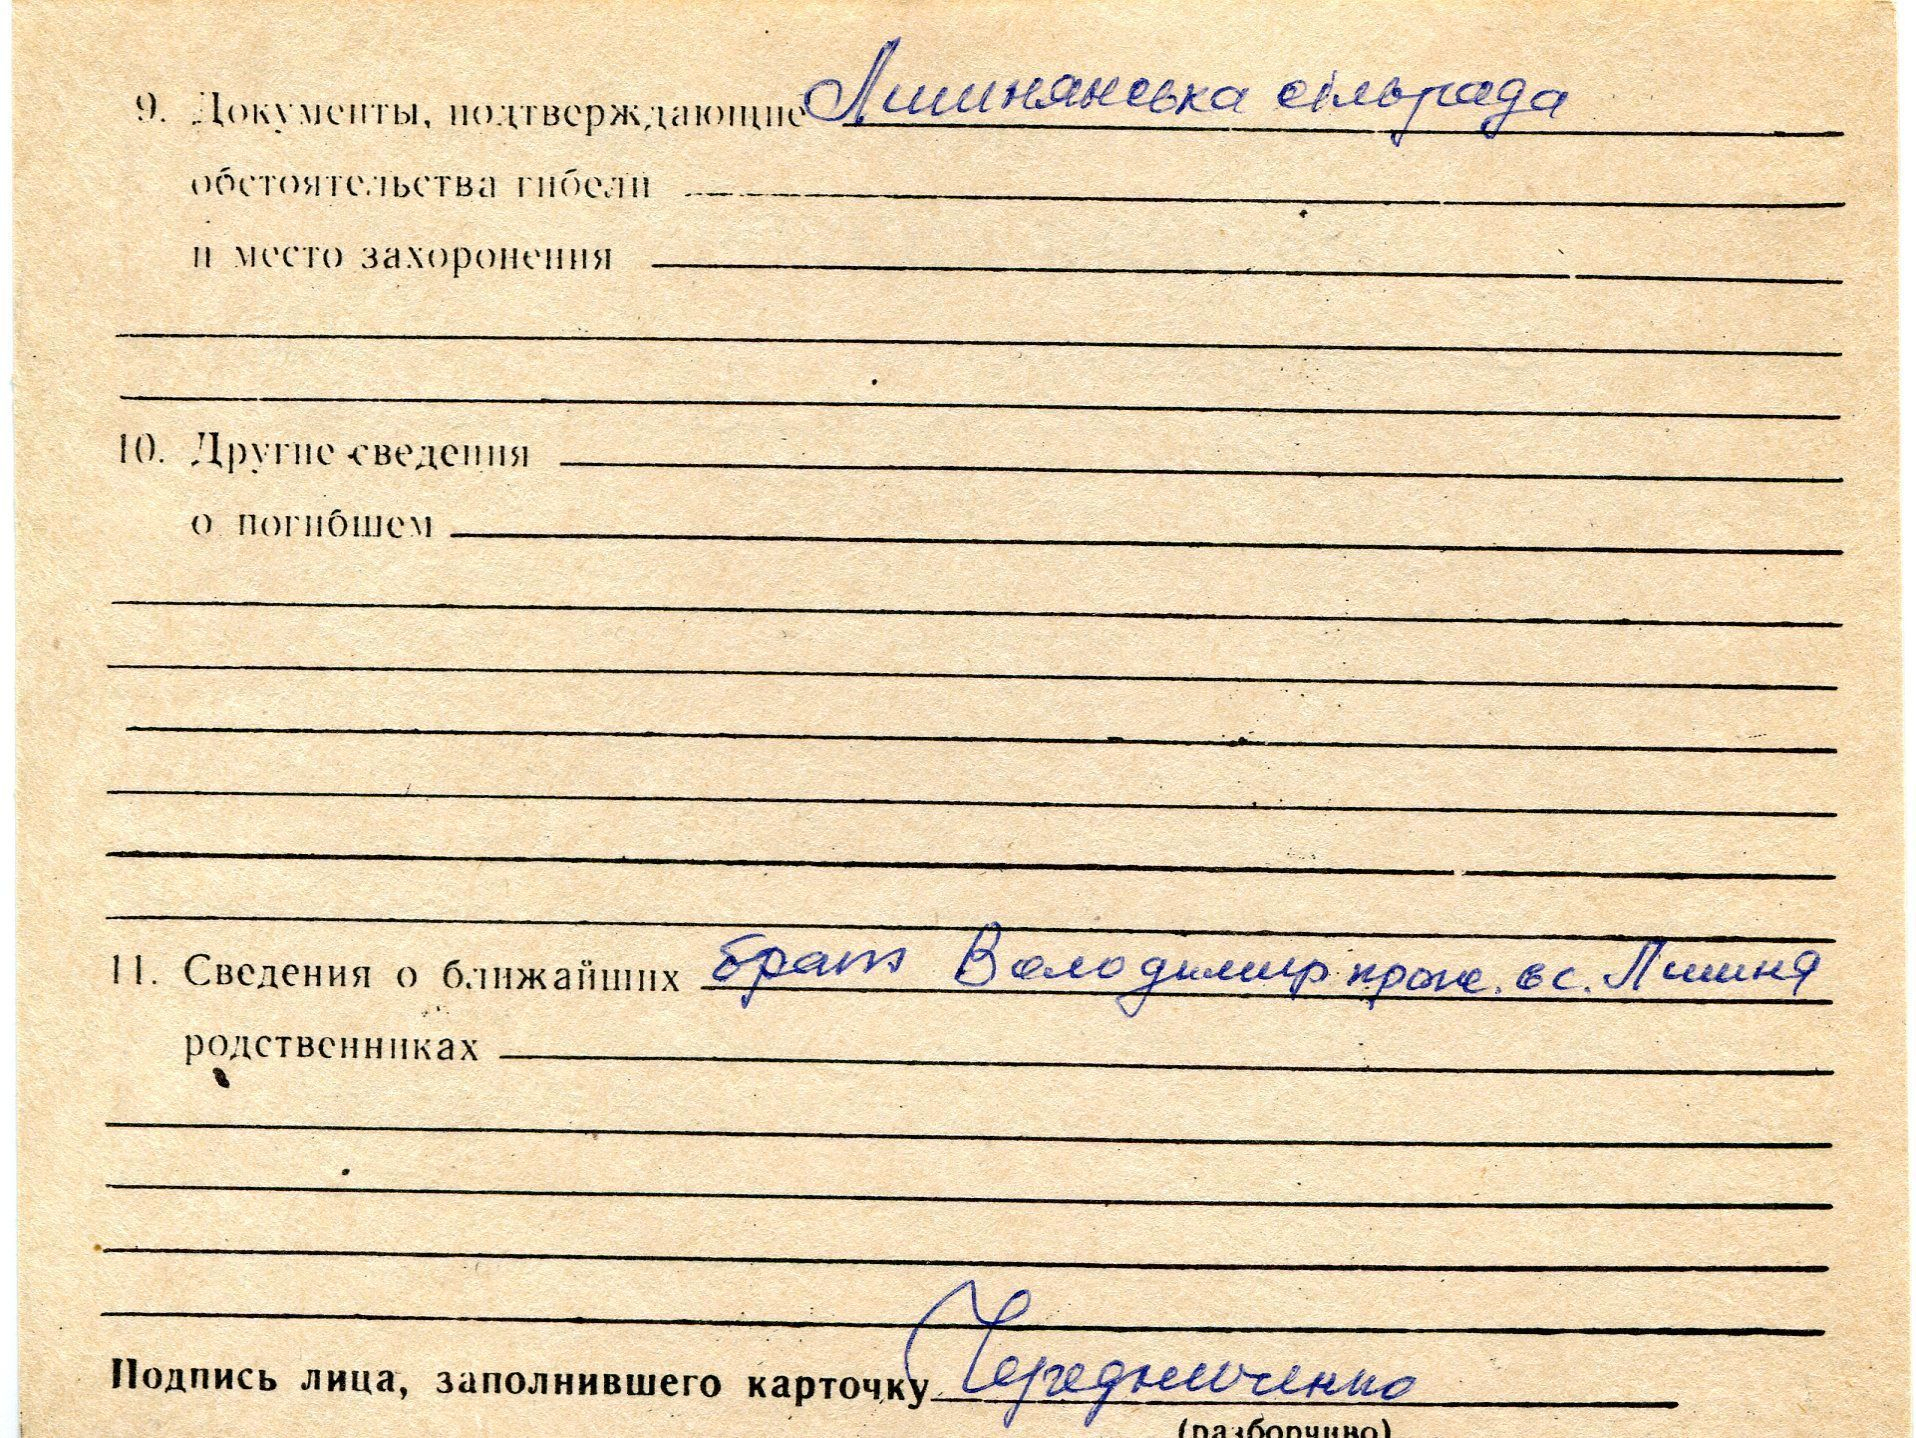 9. Документы, подтверждающие Лишнянська сільрада
обстоятельства гибели
и место захоронения
10. Другие сведения
о погибшем
11. Сведения о ближайших брат Володимир прож. в с. Лишня
родственниках
Подпись лица, заполнившего карточку Чередниченко
(разборчиво)